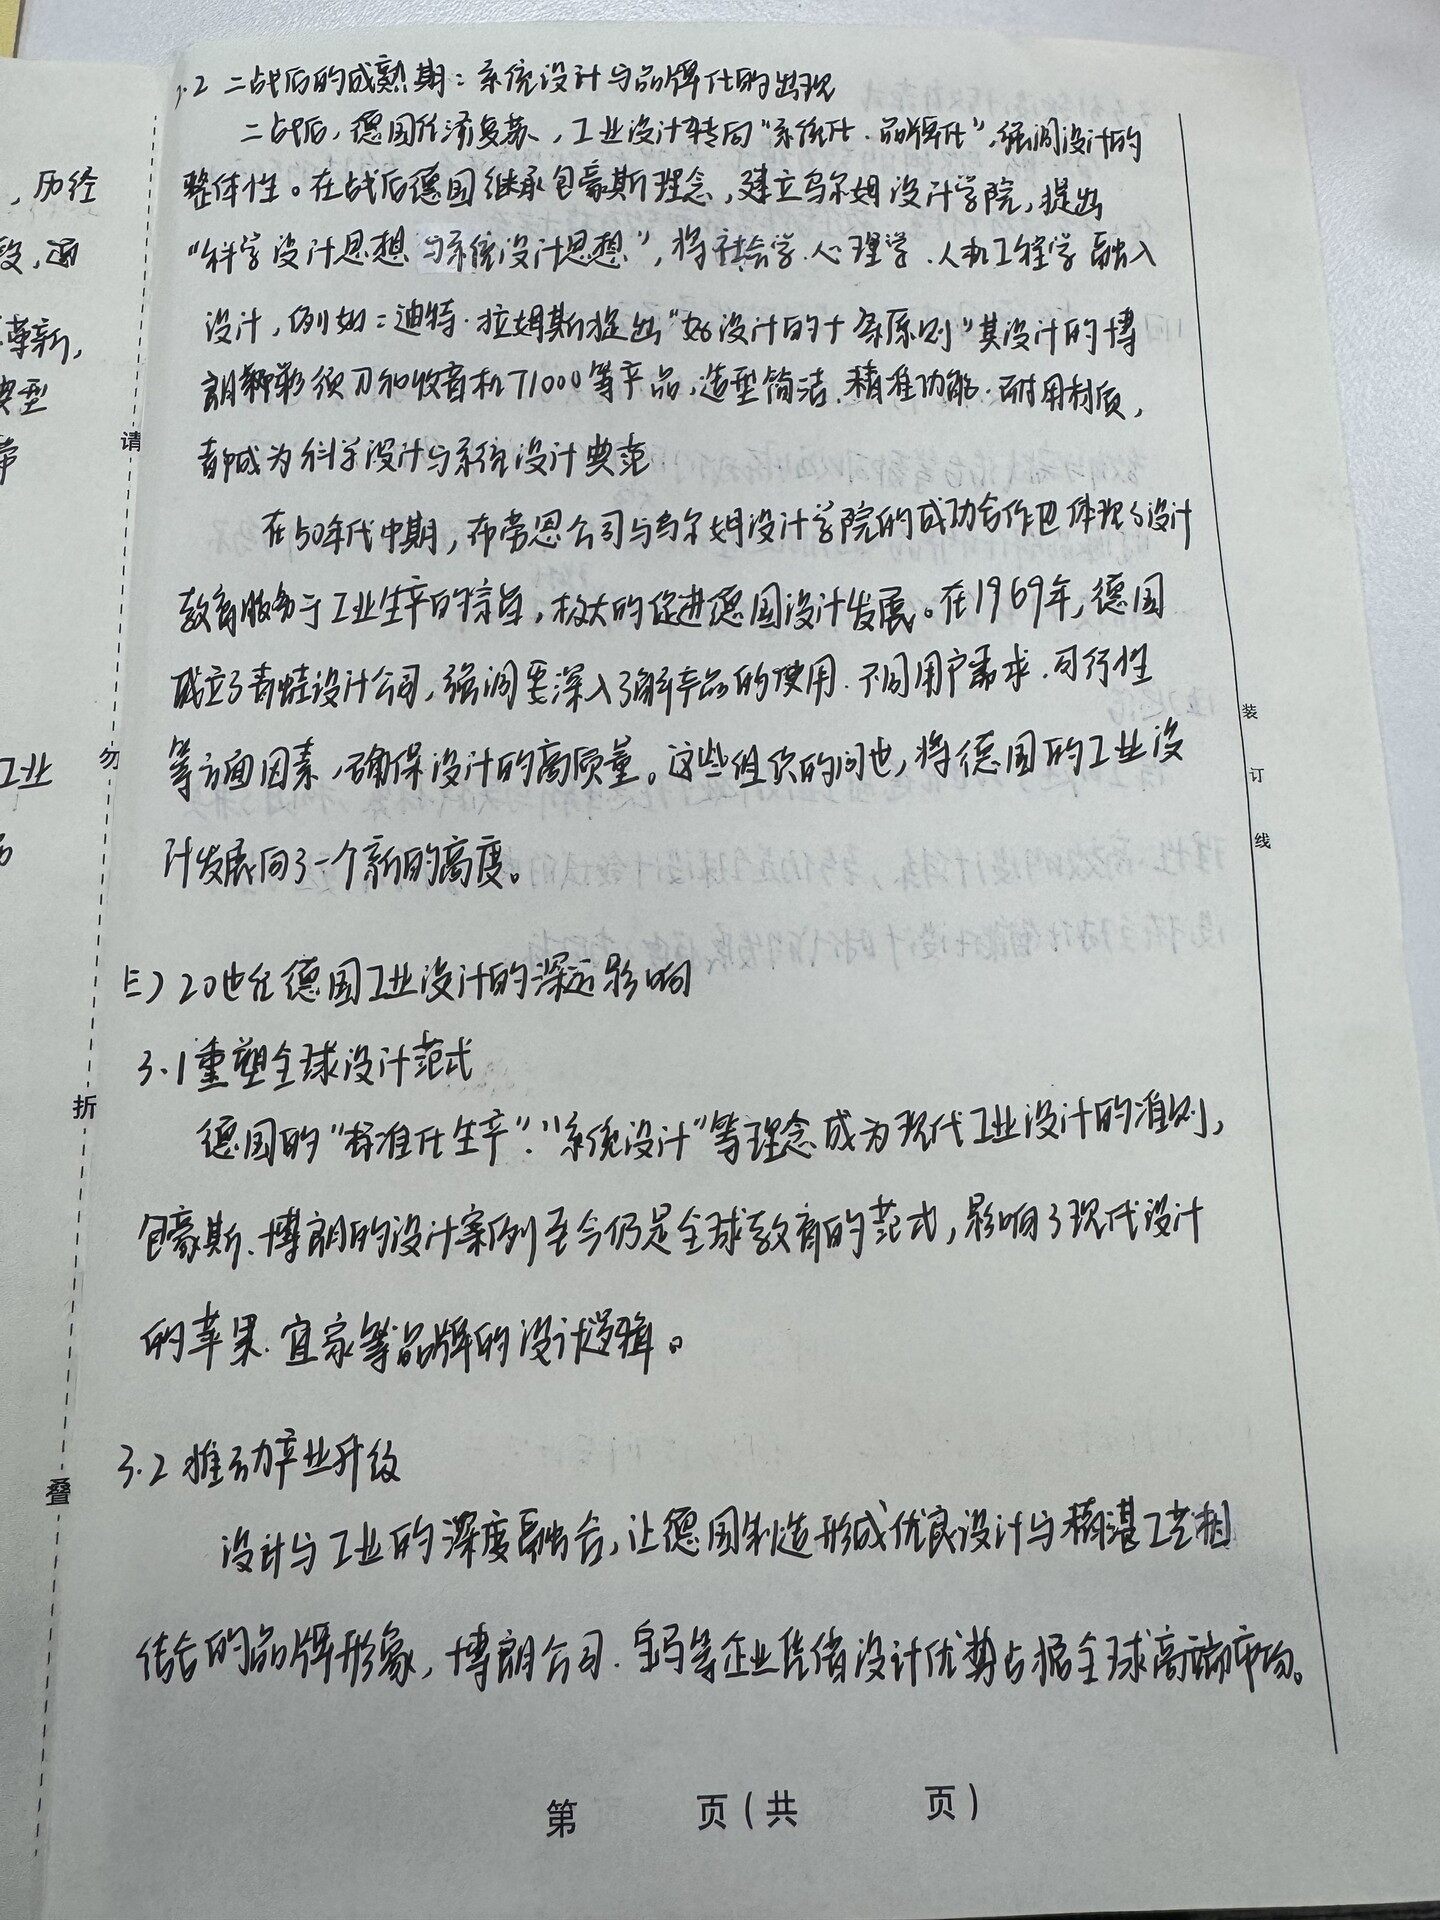 .2 二战后的成熟期：系统设计与品牌化的出现
二战后，德国经济复苏，工业设计转向“系统化、品牌化”，强调设计的
整体性。在战后德国继承包豪斯理念，建立乌尔姆设计学院，提出
“科学设计思想与系统设计思想”，将社会学、心理学、人机工程学融入
设计，例如：迪特·拉姆斯提出“好设计的十条原则”其设计的博
朗剃须刀和收音机T1000等产品，造型简洁、精准功能、耐用材质，
都成为科学设计与系统设计典范
在50年代中期，布劳恩公司与乌尔姆设计学院的成功合作也体现了设计
教育服务于工业生产的宗旨，极大的促进德国设计发展。在1969年，德国
成立了青蛙设计公司，强调要深入了解产品的使用、不同用户需求、可行性
等方面因素，确保设计的高质量。这些组织的问世，将德国的工业设
计发展向了一个新的高度。
三）20世纪德国工业设计的深远影响
3.1重塑全球设计范式
德国的“标准化生产”、“系统设计”等理念成为现代工业设计的准则，
包豪斯、博朗的设计案例至今仍是全球教育的范式，影响了现代设计
的苹果、宜家等品牌的设计逻辑。
3.2 推动产业升级
设计与工业的深度融合，让德国制造形成优良设计与精湛工艺相
结合的品牌形象，博朗公司、宝马等企业凭借设计优势占据全球高端市场。
第 页（共 页）
，历经
段，通
革新，
典型
工业
请
勿
折
叠
装
订
线